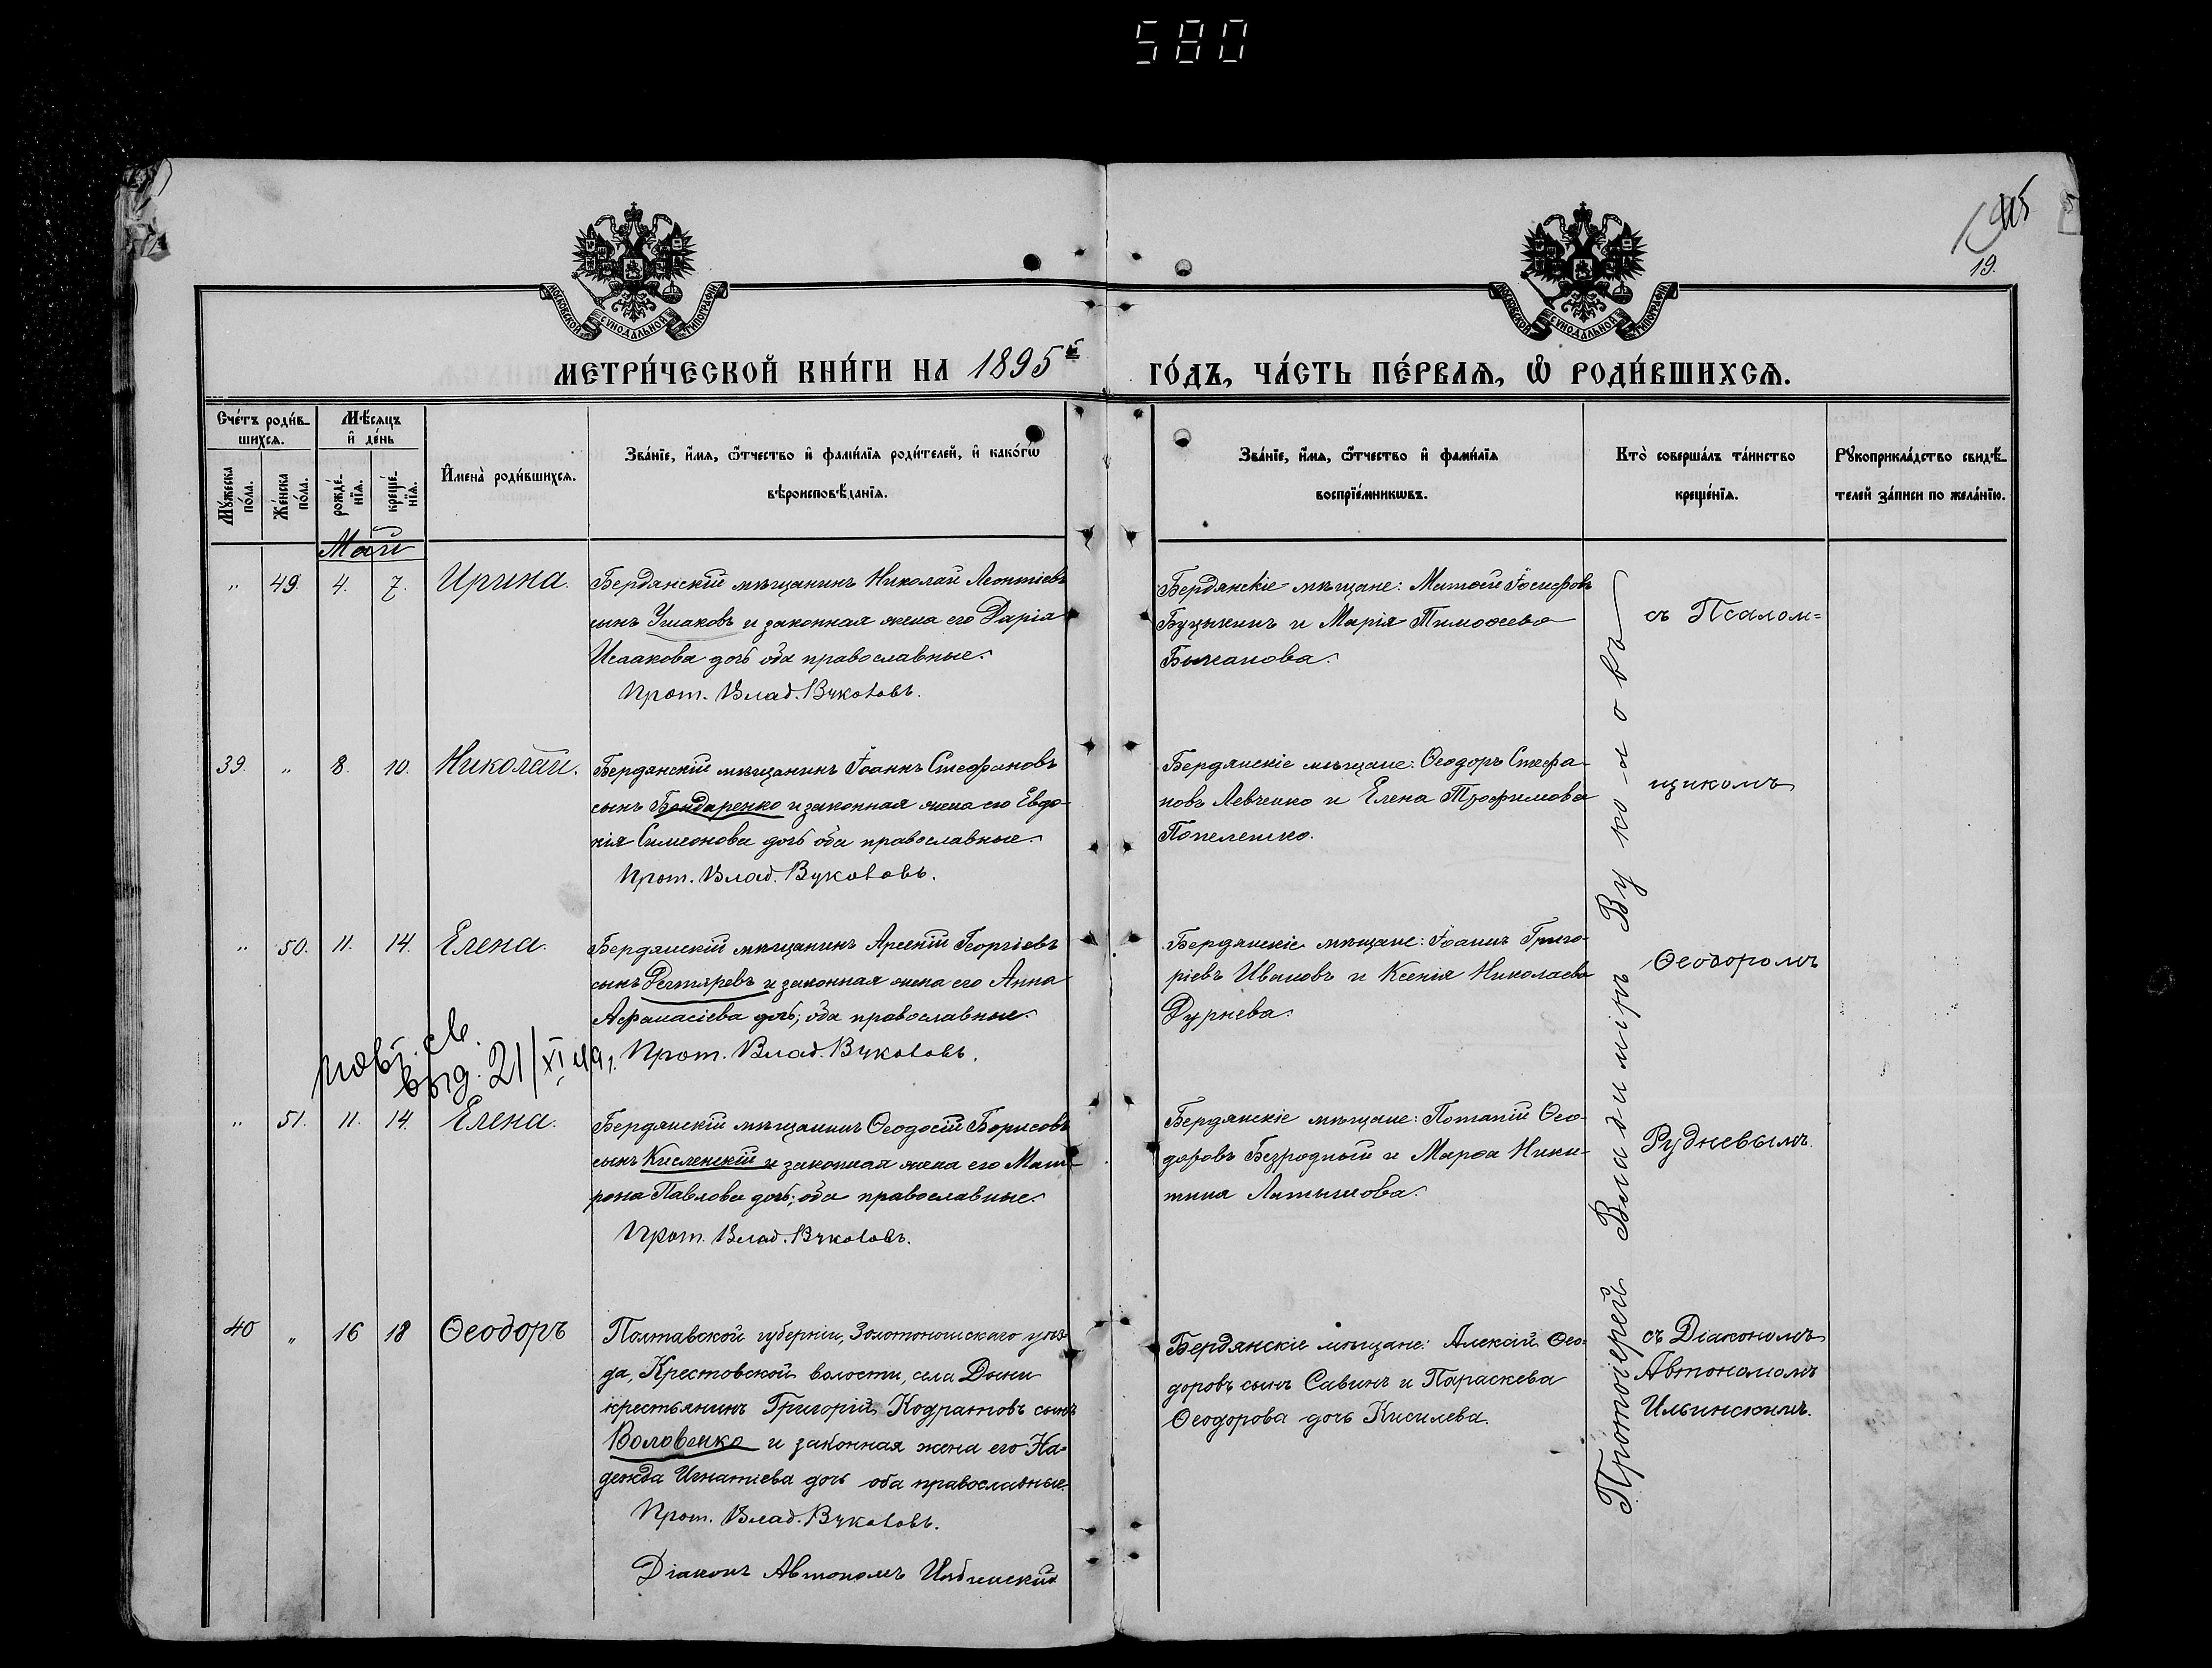 580
19.
МОСКОВСКОЙ СѴНОДАЛЬНОЙ ТИПОГРАФІИ
МОСКОВСКОЙ СѴНОДАЛЬНОЙ ТИПОГРАФІИ
МЕТРИ́ЧЕСКОЙ КНИ́ГИ НА 1895 й
ГО́ДЪ, ЧА́СТЬ ПЕ́РВАѦ, Ѽ РОДИ́ВШИХСѦ.
Сче́тъ роди́в-
шихсѧ.
Мꙋ́жеска по́ла.
Же́нска по́ла.
Мѣ́сѧцъ
и҆ де́нь
рожде́-нїѧ.
креще́-нїѧ.
И҆мена̀ роди́вшихсѧ.
Зва́нїе, и҆́мѧ, ѻ҆́тчество и҆ фами́лїѧ роди́телей, и҆ како́гѡ
вѣроисповѣ́данїѧ.
Зва́нїе, и҆́мѧ, ѻ҆́тчество и҆ фами́лїѧ
воспрїе́мникѡвъ.
Кто̀ соверша́лъ та́инство
креще́нїѧ.
Рꙋкоприкла́дство свидѣ́-
телей за́писи по жела́нїю.
Май
" 49. 4. 7. Ирина.
Бердянскій мѣщанинъ Николай Леонтіевъ
сынъ Ушаковъ и законная жена его Дарія
Исаакова дочь оба православные.
Прот. Влад. Вуколовъ.
Бердянскіе мѣщане: Матѳей Іосифовъ
Буцыкинъ и Марія Тимоѳеева
Бижанова.
съ Псалом=
39. " 8. 10. Николай.
Бердянскій мѣщанинъ Іоаннъ Стефановъ
сынъ Бондаренко и законная жена его Евдо-
кія Симеонова дочь оба православные.
Прот. Влад. Вуколовъ.
Бердянскіе мѣщане: Ѳеодоръ Стефа-
новъ Левченко и Елена Трофимова
Попелешко.
щикомъ
" 50. 11. 14. Елена.
Бердянскій мѣщанинъ Арсеній Георгіевъ
сынъ Дегтяревъ и законная жена его Анна
Аѳанасіева дочь; оба православные.
Прот. Влад. Вуколовъ.
Бердянскіе мѣщане: Іоаннъ Григо-
ріевъ Ивановъ и Ксенія Николаева
Дурнева.
Ѳеодоромъ
выд. 21/XI
" 51. 11. 14. Елена.
Бердянскій мѣщанинъ Ѳеодосій Борисовъ
сынъ Кисленскій и законная жена его Мат-
рона Павлова дочь; оба православные.
Прот. Влад. Вуколовъ.
Бердянскіе мѣщане: Потапій Ѳео-
доровъ Безродный и Марѳа Ники-
тина Латышова.
Рудневымъ.
40 " 16 18 Ѳеодоръ
Полтавской губерніи, Золотоношскаго уѣз-
да, Крестовской волости, села Домки
крестьянинъ Григорій Кодратовъ сынъ
Воловенко и законная жена его На-
дежда Игнатіева дочь оба православные.
Прот. Влад. Вуколовъ.
Діаконъ Автономъ Ильинскій
Бердянскіе мѣщане: Алексій Ѳео-
доровъ сынъ Савинъ и Параскева
Ѳеодорова дочь Киселева.
съ Діакономъ
Автономомъ
Ильинскимъ.
Протоіерей Владиміръ Вуколовъ